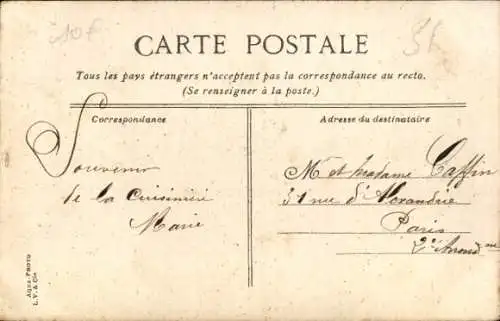 10€
CARTE POSTALE
Tous les pays étrangers n'acceptent pas la correspondance au recto.
(Se renseigner à la poste.)
Correspondance
Souvenir
de la Cuisinière
Marie
Adresse du destinataire
Mr et Madame Caffin
31 rue d'Alexandrie
Paris
2e Arrond me
AQUA-PHOTO
L.V. & Cie